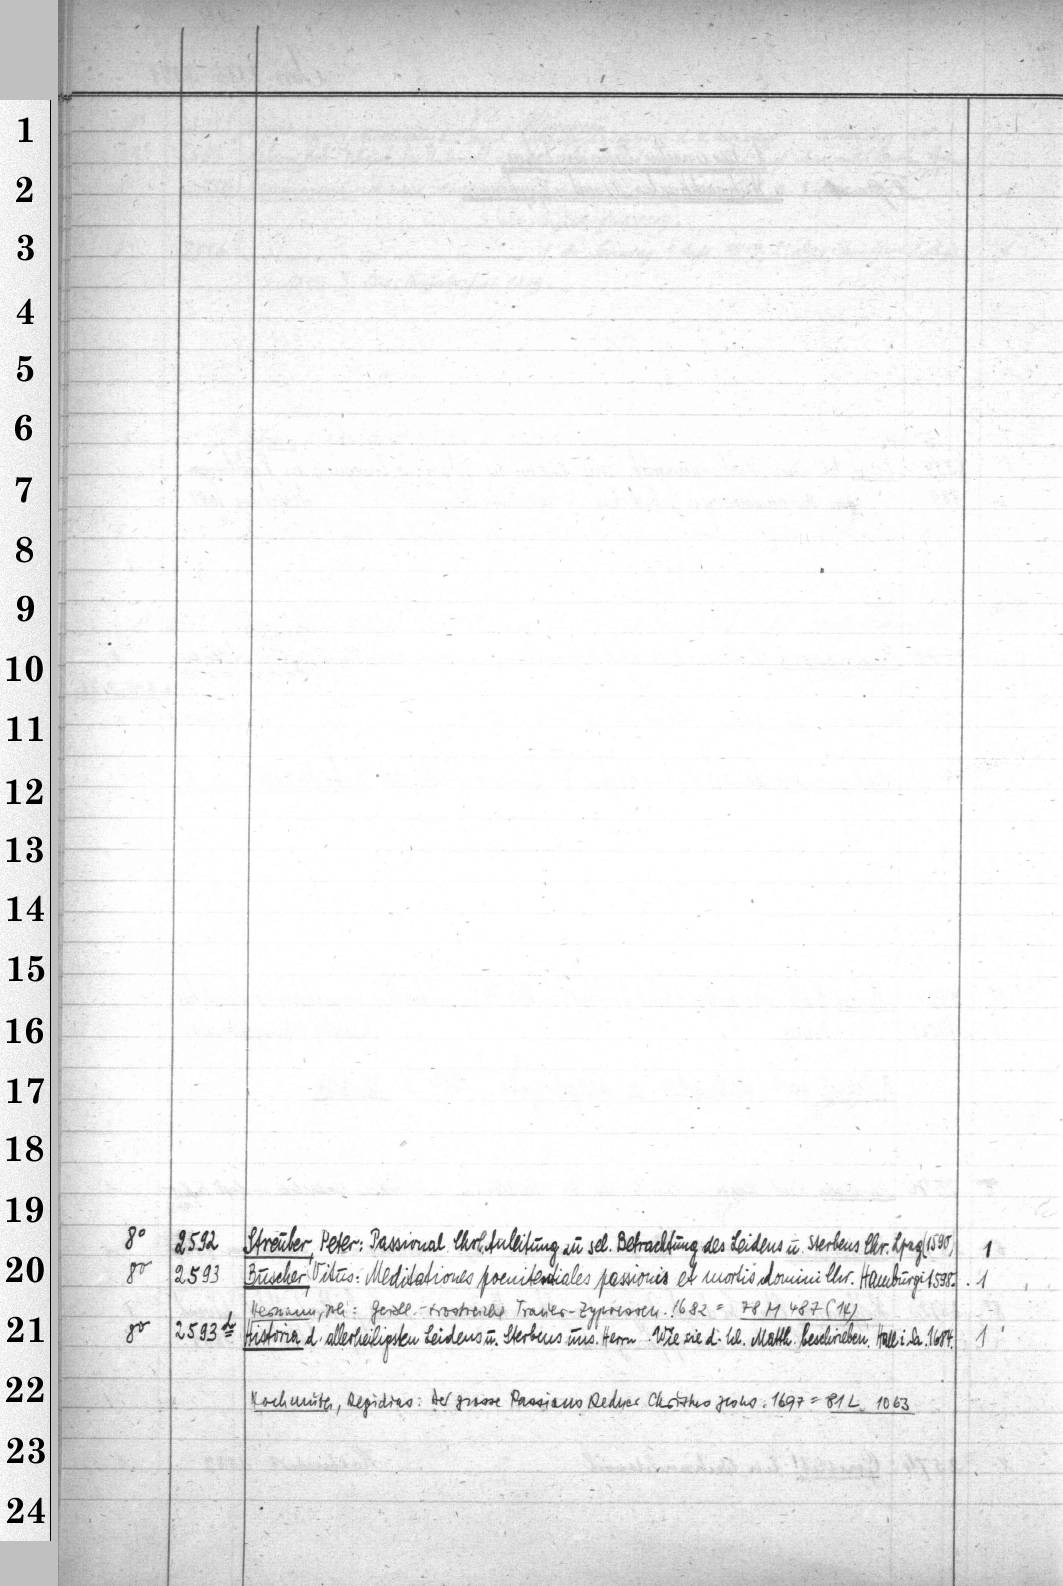 1
2
3
4
5
6
7
8
9
10
11
12
13
14
15
16
17
18
19
8° 2592 Streuber, Peter: Passional. Chrl. Anleitung zu sel. Betrachtung des Leidens u. Sterbens Chr. Lpzg (1590) 1
20
8° 2593 Buscher, Vitus: Meditationes poenitentiales passionis et mortis domini Chr. Hamburgi 1598. 1
Hermann, : Geistl.-trostreiche Trauer-Zypressen. 1682 = 78 M 487 (14)
21
8° 2593 Historia d. allerheiligsten Leidens u. Sterbens uns. Herrn Wie sie d. hl. Matth. beschrieben. Hall i. Sa. 1684. 1
22
Hochmuth, Aegidius: Der grosse Passions Redner Christus Jesus. 1697 = 81 L 1063
23
24